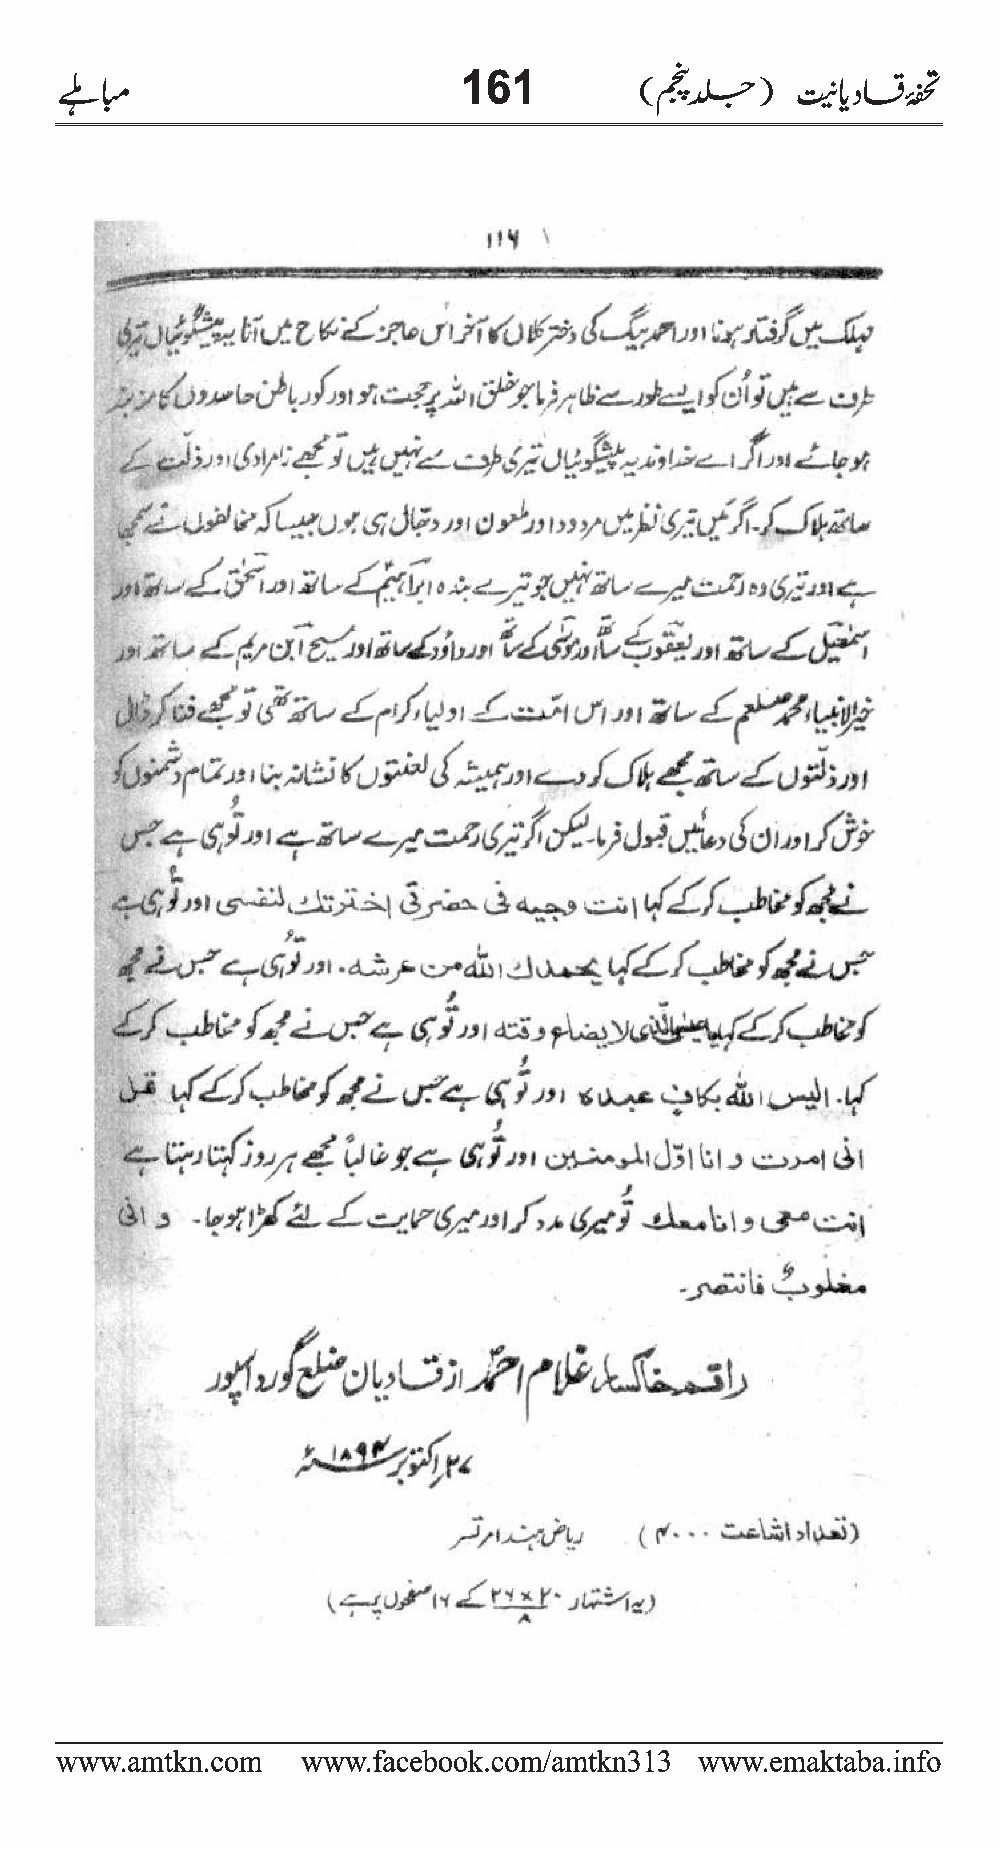 تحفۂ قادیانیت (جلد پنجم) 161 مباہلے
۱۱۶
مہلک میں گرفتار ہونا اور احمد بیگ کی دختر کلاں کا آخر اس عاجز کے نکاح میں آنا یہ پیشگوئیاں تیری
طرف سے ہیں تو اُن کو ایسے طور سے ظاہر فرما جو خلق اللہ پر حجت ہو اور کور باطن حاسدوں کا منہ بند
ہو جائے اور اگر اے خداوند یہ پیشگوئیاں تیری طرف سے نہیں ہیں تو مجھے نامرادی اور ذلّت کے
ساتھ ہلاک کر۔ اگر میں تیری نظر میں مردود اور ملعون اور دجّال ہی ہوں جیسا کہ مخالفوں نے سمجھا
ہے اور تیری وہ رحمت میرے ساتھ نہیں جو تیرے بندہ ابراہیمؑ کے ساتھ اور اسحٰقؑ کے ساتھ اور
اسمٰعیلؑ کے ساتھ اور یعقوبؑ کے ساتھ اور موسٰیؑ کے ساتھ اور داؤدؑ کے ساتھ اور مسیح ابن مریمؑ کے ساتھ اور
خیر الانبیاء محمد صلعم کے ساتھ اور اس امّت کے اولیاء کرام کے ساتھ تھی تو مجھے فنا کر ڈال
اور ذلّتوں کے ساتھ مجھے ہلاک کر دے اور ہمیشہ کی لعنتوں کا نشانہ بنا اور تمام دشمنوں کو
خوش کر اور ان کی دعائیں قبول فرما۔ لیکن اگر تیری رحمت میرے ساتھ ہے اور تُو ہی ہے جس
نے مجھ کو مخاطب کر کے کہا انت وجیہ فی حضرتی اخترتك لنفسی اور تُو ہی ہے
جس نے مجھ کو مخاطب کر کے کہا یحمدك اللہ من عرشہ۔ اور تُو ہی ہے جس نے مجھ
کو مخاطب کر کے کہا یا عیسی الذی لا یضاع وقتہ اور تُو ہی ہے جس نے مجھ کو مخاطب کر کے
کہا۔ الیس اللہ بکافٍ عبدہ اور تُو ہی ہے جس نے مجھ کو مخاطب کر کے کہا قل
انی امرت و انا اوّل المومنین اور تُو ہی ہے جو غالباً مجھے ہر روز کہتا رہتا ہے
انت معی و انا معك تُو میری مدد کر اور میری حمایت کے لئے کھڑا ہو جا۔ و انی
مغلوبٌ فانتصر۔
راقم خاکسار غلام احمدؐ از قادیان ضلع گورداسپور
۲۷ اکتوبر ۱۸۹۴ء
(تعداد اشاعت ۴۰۰۰) ریاض ہند امرتسر
(یہ اشتہار ۲۰×۲۶/۸ کے ۱۶ صفحوں پر ہے)
www.amtkn.com www.facebook.com/amtkn313 www.emaktaba.info